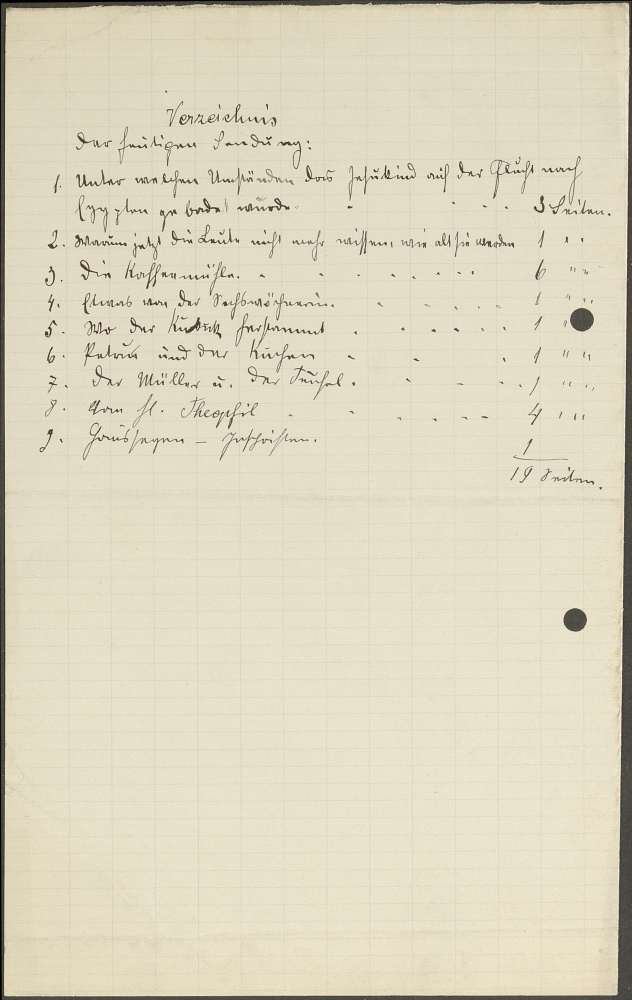 Verzeichnis
der heutigen Sendung:
1. Unter welchen Umständen das Jesukind auf der Flucht nach
Egypten gebadet wurde. - - - - 3 Seiten.
2. Warum jetzt die Leute nicht mehr wissen, wie alt sie werden 1 " "
3. Die Kaffeemühle. - - - - - - - 6 " "
4. Etwas von der Sechswöchnerin. - - - - - 1 " "
5. Wo der Kuckuck herstammt - - - - - 1 "
6. Petrus und der Kuchen - - - 1 " "
7. Der Müller u. der Teufel. - - - - 1 " "
8. Vom hl. Theophil - - - - - - 4 " "
9. Haussegen - Inschriften. 1
19 Seiten.